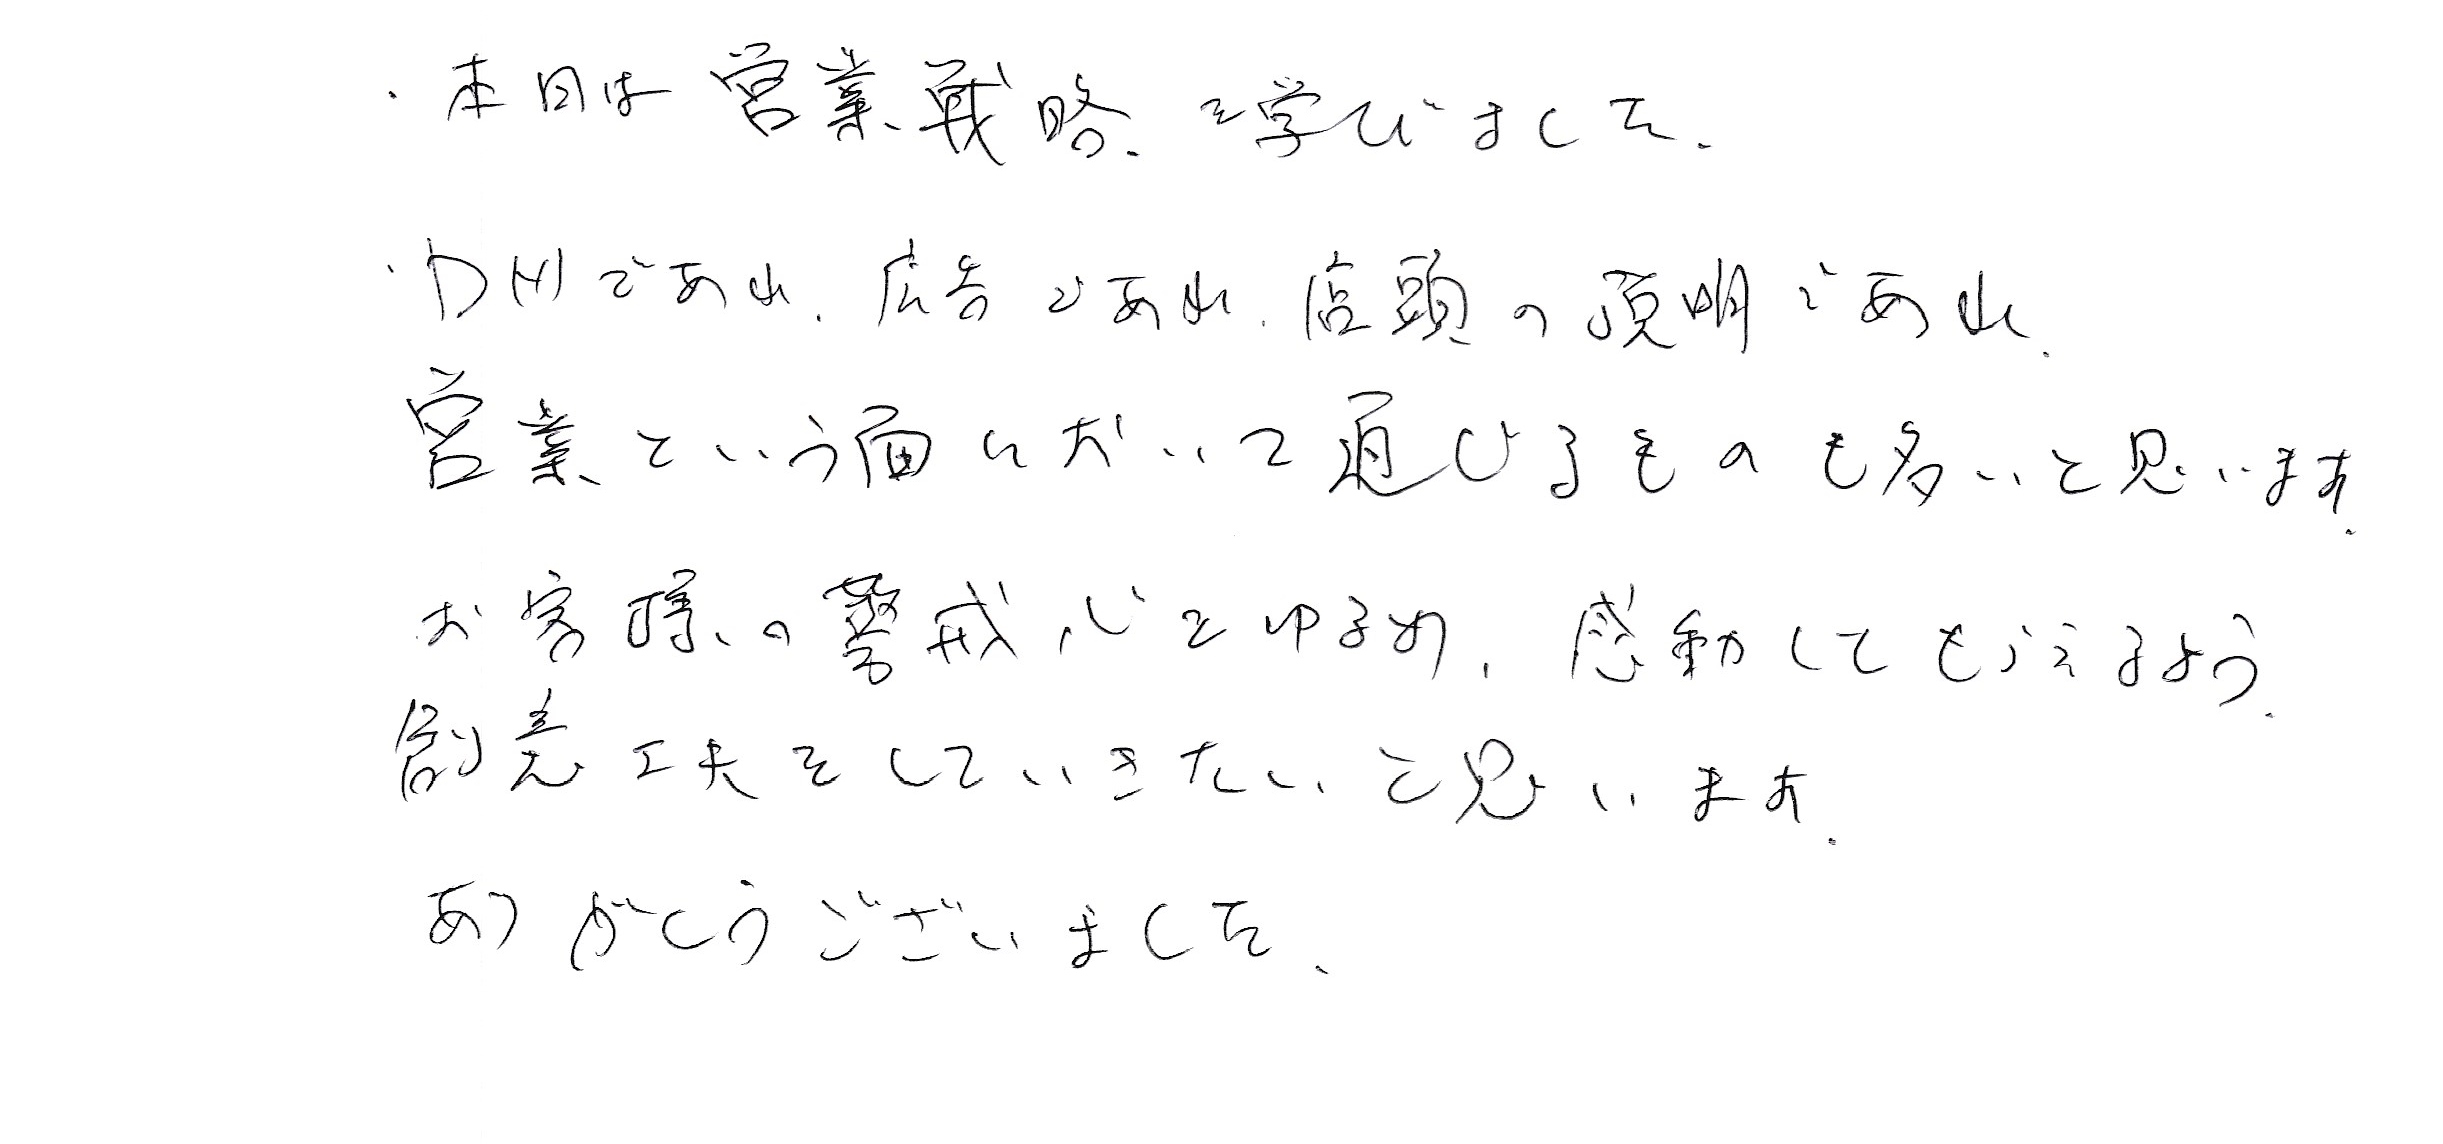 ・本日は営業戦略を学びました。
・DMであれ、広告であれ、店頭の説明であれ、
営業という面において通じるものも多いと思います。
お客様の警戒心をゆるめ、感動してもらえるよう、
創意工夫をしていきたいと思います。
ありがとうございました。